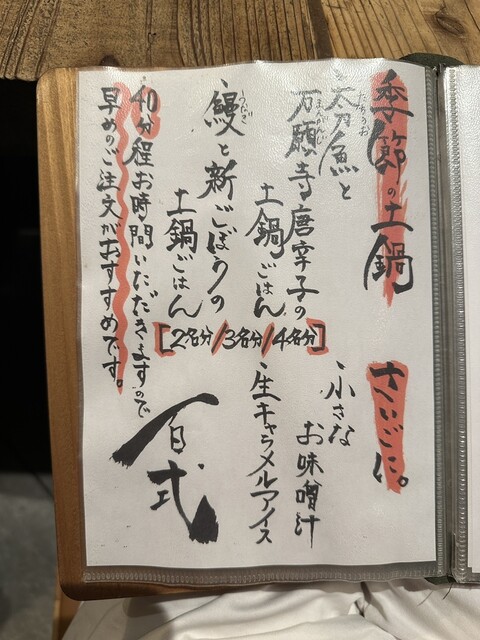 季節の土鍋
・太刀魚と
たちうお
万願寺唐辛子の
まんがんじ
土鍋ごはん
・鰻と新ごぼうの
うなぎ
土鍋ごはん
[2名分/3名分/4名分]
※40分程お時間いただきますので
早めのご注文がおすすめです。
さいごに。
・小さな
お味噌汁
・生キャラメルアイス
百式